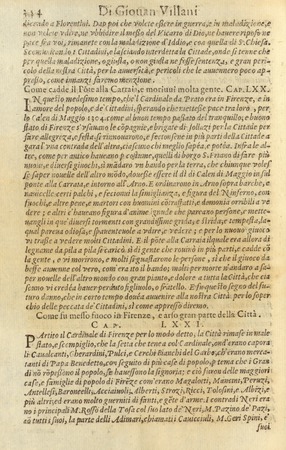 334 Di Giouan Villani
dicendo a Fiorentini. Dap poi che volete essere in guerra, e in maladizione, e
non volete vdire, ne vbbidire il messo del Vicario di Dio, ne hauere riposo ne
pace fra voi, rimanete con la maladizione d'Iddio, e con quella di S. Chiesa.
i Cittadini, e lasciando interdetta la Cittade, onde si tenne che
per quella maladizione, ogiusta, o non giusta ne fosse sentenza, e gran peri-
colo della nostra Città, per le auuersità, e pericoli che le auuennero poco ap-
presso, come innanzi faremo menzione.
Come cadde il Pōte alla Carraia, e moriuui molta gente. Cap. LXX.
IN questo medesimo tempo, che'l Cardinale da Prato era in Firenze, e in
amore del popolo, e de' Cittadini, sperando che mettesse pace tra loro, per
lo Calen di Maggio 1304. come al buon tempo passato del tranquillo, e buono
stato di Firenze s'vsauano le compagnie, e brigate di sollazzi per la Cittade per
fare allegrezza, e festa si rinnouarono, e fecersone in più parti della Cittade a
gara l'vna contrada dell'altra, ciascuno che meglio sapea, e potea. Infra le al-
tre, come per antico haueano p costume, quelli di borgo S. Friano di fare più
nuoui, e diuersi giuochi, si mādaro vn bando per la terra, che chiunque voles-
se saper nouelle dell'altro mōdo, douesse essere il dì di Calen di Maggio in sul
ponte alla Carraia, e intorno all'Arno. E ordinarono in Arno sopra barche, e
nauicelle certi palchi, e feciono la somiglianza, e figura del Ninferno, con
fuochi, e altre pene, e martori con huomini contrafatti, e demonia orribili a ve
dere; e altri c'haueano figura d'anime ignude che pareano persone, e mette-
uangli in que' diuersi tormenti con grandissime grida, e strida, e tempesta, la
qual parea odiosa, e spauenteuole a vdire, e vedere; e per lo nuouo giuoco
vi trasse a vedere molti Cittadini. E il pōte alla Carraia il quale era allora di
legname da pila a pila si caricò sì di gente che rouinò in più parti, e cadde cō
la gente, e vi morirono, e molti sguastarono le persone, sì che il giuoco da
beffe auenne col vero, com era ito il bando, molti per morte n'andaro a sa-
per nouelle dell'altro mondo con gran pianto, e dolore a tutta la Città, che cia
scuno vi credea hauer perduto figliuolo, o fratello. E fu questo segno del fu-
turo danno, che in certo tempo douea auuenire alla nostra Città per lo soper
chio delle peccata de' Cittadini, sì come appresso diremo.
Come fu messo fuoco in Firenze, e arso gran parte della Città.
CAP. LXXI.
PArtito il Cardinale di Firenze per lo modo detto, la Città rimase in male
stato, e scompiglio, che la setta che tenea col Cardinale, ond'erano capora
li Caualcanti, Gherardini, Pulci, e Cerchi Bianchi del Garbo, ch'erano merca-
tanti di Papa Benedetto, con seguito di più case di popolo p tema che i Gran
di nō rōpessono il popolo, se hauessono la signoria; e ciò furon delle maggiori
case, e famiglie di popolo di Firēze com'erano Magalotti, Mancini, Peruzzi,
Antellesi, Baroncelli, Acciaiuoli, Alberti, Strozi, Ricci, Tolosini, e Albizi, e
più altri, ed erano molto guerniti di fanti, e gēte d'arme. I contradi Neri era
no i principali M. Rosso della Tosa col suo lato de' Neri, M. Pazino de' Pazi,
cō tutti i suoi, la parte delli Adimari, chiamati i Cauicciuli, M. Geri Spini, e
suoi